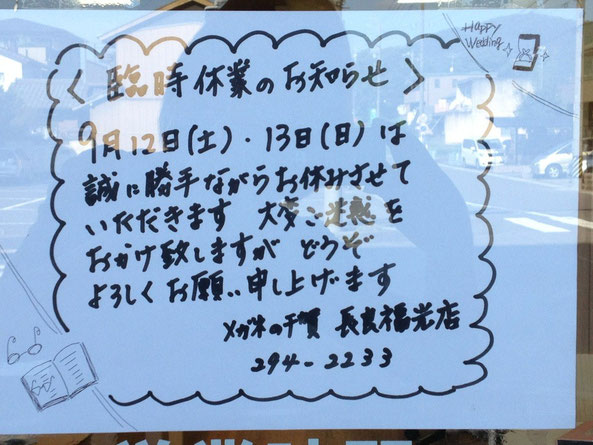 Happy
Wedding
〈臨時休業のお知らせ〉
9月12日(土)・13日(日)は
誠に勝手ながらお休みさせて
いただきます 大変ご迷惑を
おかけ致しますが どうぞ
よろしくお願い申し上げます
メガネの千賀 長良福光店
294-2233